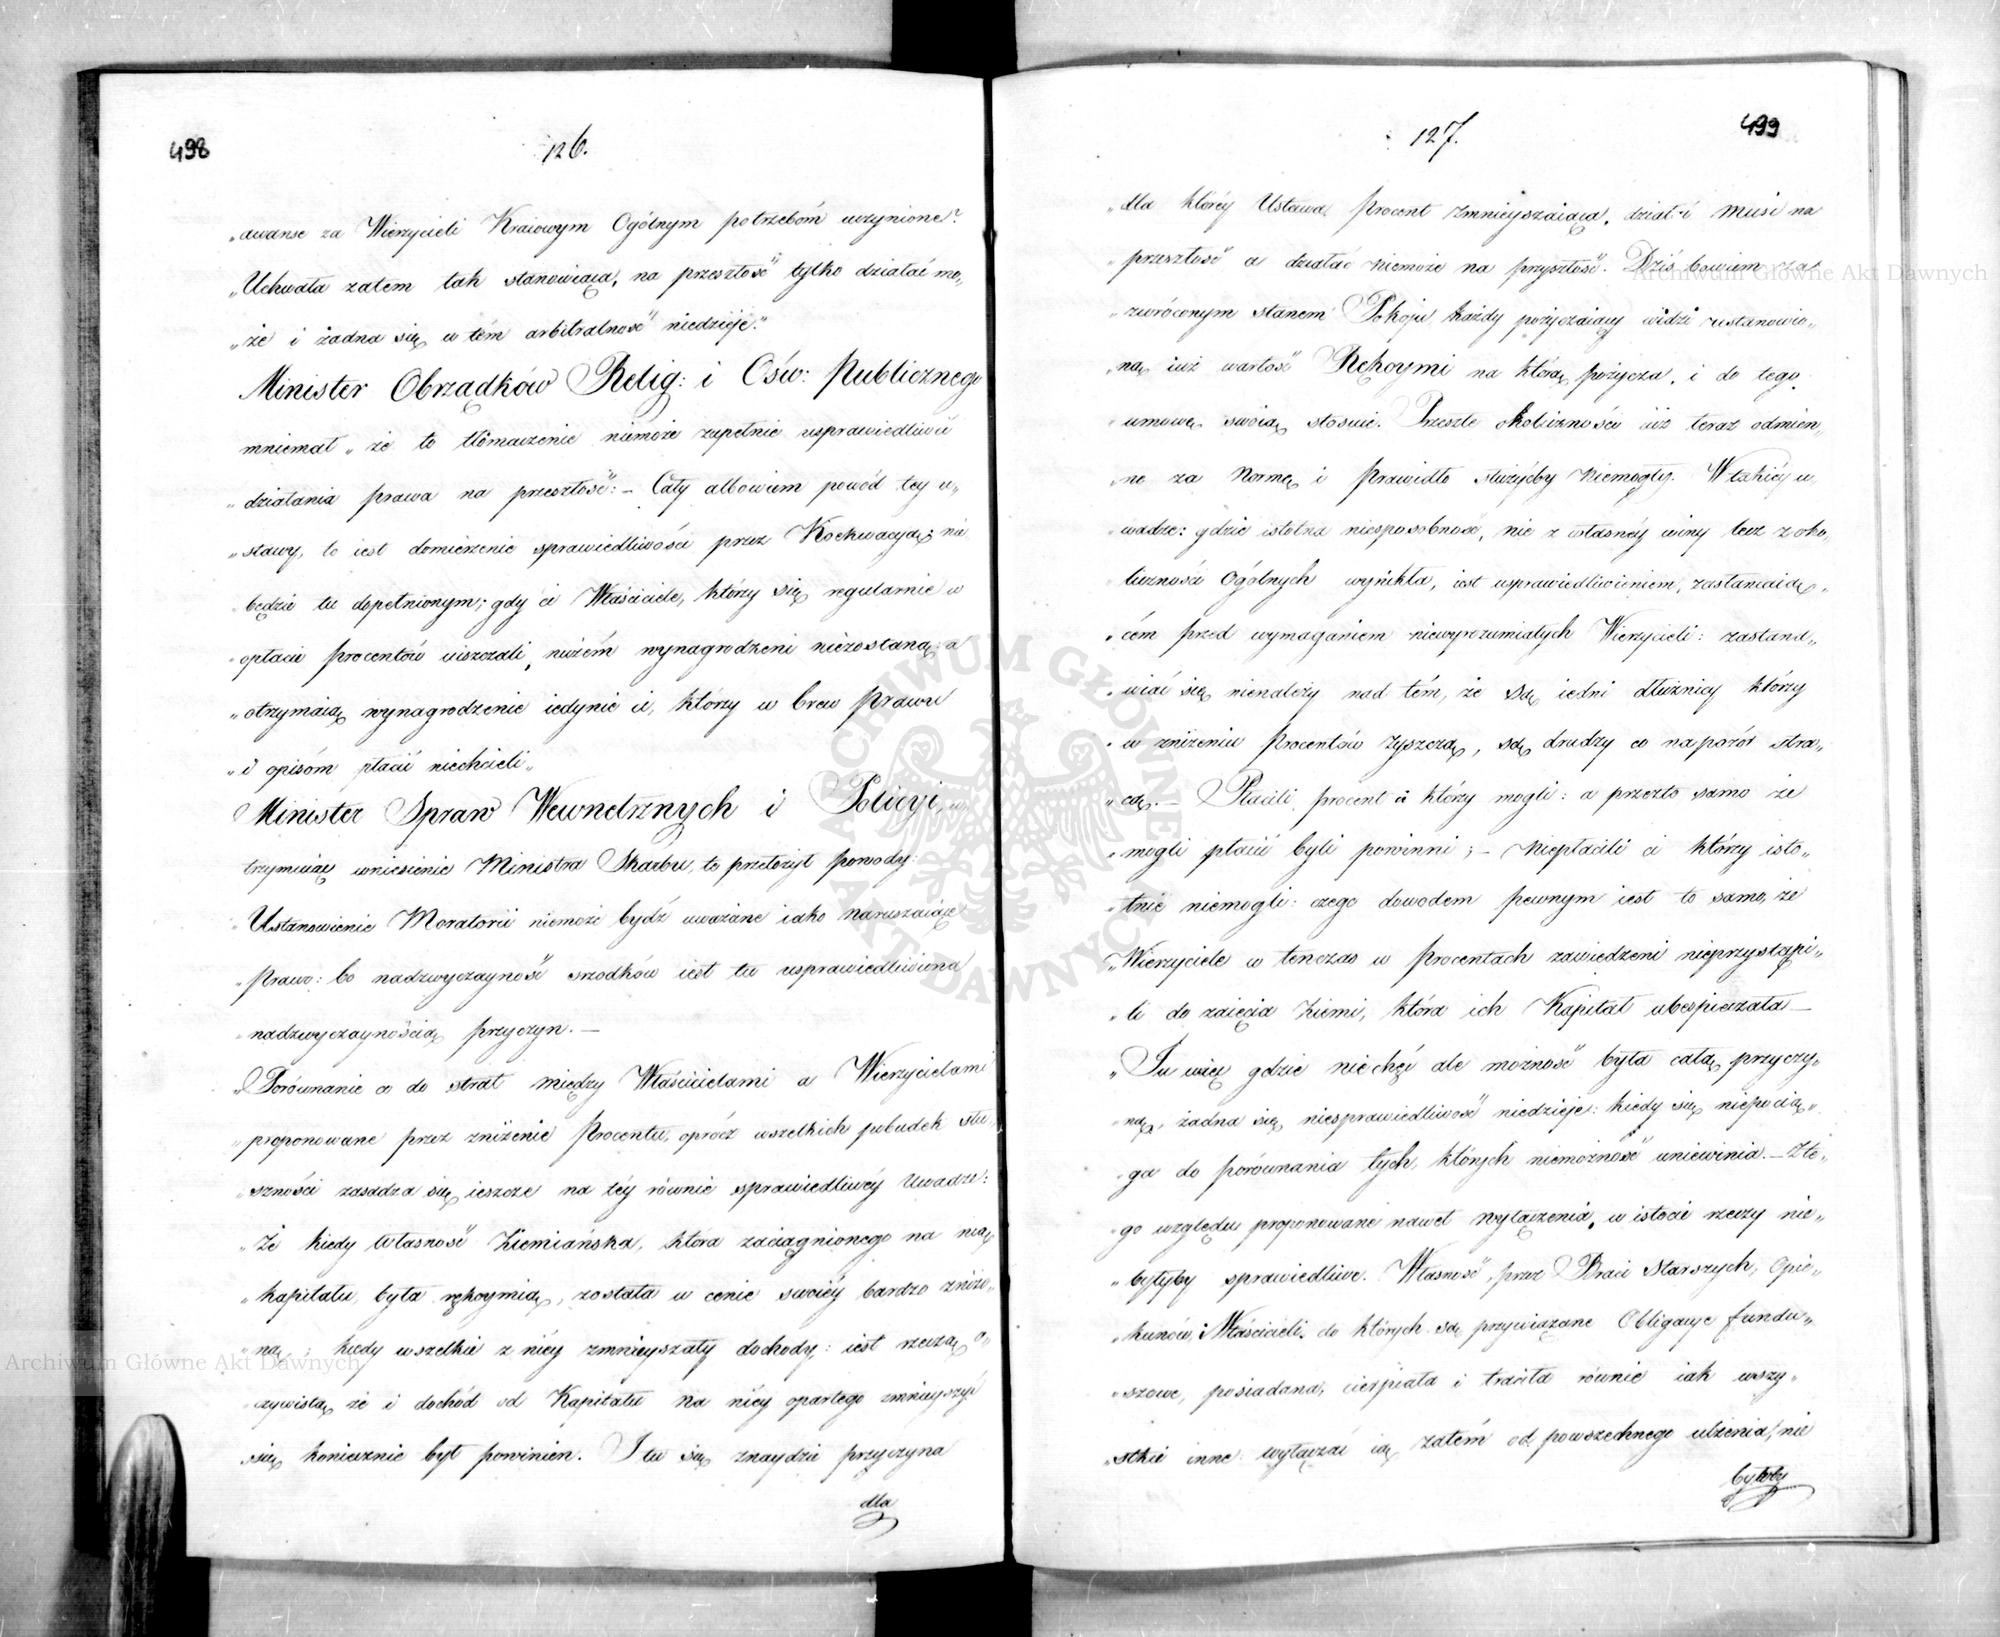 498
126.
„awanse za Wierzycieli Kraiowym Ogólnym potrzebóm uczynione?
„Uchwała zatem tak stanowiąca, na przeszłość tylko działać mo„
„że i żadna się w tém arbitralność niedzieje."
Minister Obrządków Relig: i Ośw: Publicznego
mniemał „że to tłómaczenie niemoże zupełnie usprawiedliwić
„działania prawa na przeszłość:- Cały albowiem powód tey u„
„stawy, to iest domierzenie sprawiedliwości przez Koekwacyą; nie
„będzie tu dopełnionym; gdy ci Właściciele, którzy się regularnie w
„opłacie procentów uiszczali, niczém wynagrodzeni niezostaną; a
„otrzymaią wynagrodzenie iedynie ci, którzy w brew Prawu
„i opisóm płacić niechcieli„
Minister Spraw Wewnetrznych i Policyi, u„
trzymuiąc wniesienie Ministra Skarbu, te przełożył powody:
„Ustanowienie Moratorii niemoże bydź uważane iako naruszaiące
„Prawo: bo nadzwyczayność srzodków iest tu usprawiedliwiona
„nadzwyczaynością przyczyn. —
„Porównanie co do strat między Właścicielami a Wierzycielami
„proponowane przez zniżenie Procentu, oprócz wszelkich pobudek słu„
„szności zasadza się ieszcze na téy równie sprawiedliwéy Uwadze:
„Że kiedy Własność Ziemiańska, która zaciągnionego na nią
„kapitału, była rękoymią, została w cenie swoiéy bardzo zniżo„
„ną; kiedy wszelkie z niéy zmnieyszały dochody: iest rzeczą o„
„czywistą że i dochód od Kapitału na niéy opartego zmnieyszyć
„się koniecznie był powinien. I tu się znaydzie przyczyna
dla
499
127.
„dla któréy Ustawa, Procent zmnieyszaiąca, działać musi na
„przeszłość a działać niemoże na przyszłość. Dziś bowiem za
„zwróconym stanem Pokoju, każdy pożyczaiący widzi ustanowio„
„ną iuż wartość Rękoymi na którą pożycza, i do tego
„umowę swoią stosuie. Przeszłe okoliczności iuż teraz odmien„
„ne za Normę i Prawidło służyćby niemogły. W takiéy u„
„wadze: gdzie istotna niesposobność, nie z własnéy winy lecz z oko„
„liczności Ogólnych wynikła, iest usprawiedliwieniem, zasłaniaią„
„cém przed wymaganiem niewyrozumiałych Wierzycieli: zastana„
„wiać się nienależy nad tém, że są iedni dłużnicy którzy
„w zniżeniu Procentów zyszczą, są drudzy co napozór stra„
„cą. — Płacili procent ci którzy mogli: a przezto samo że
„mogli płacić byli powinni; - Niepłacili ci którzy isto„
„tnie niemogli: czego dowodem pewnym iest to samo, że
„Wierzyciele w tenczas w Procentach zawiedzeni nieprzystąpi„
„li do zaięcia Ziemi, która ich Kapitał ubespieczała —
„Tu więc gdzie nie chęć ale możność była całą przyczy„
„ną, żadna się niesprawiedliwość niedzieje: kiedy się niepocią„
„ga do porównania tych, których niemożność uniewinia. — Z te„
„go względu proponowane nawet wyłączenia, w istocie rzeczy nie„
„byłyby sprawiedliwe. Własność, przez Braci Starszych, Opie„
„kunów, i Właścicieli, do których są przywiązane Obligacye fundu„
„szowe, posiadana, cierpiała i traciła równie iak wszy„
„stkie inne: wyłączać ią zatém od powszechnego ulżenia, nie
byłoby
Archiwum Główne Akt Dawnych
Archiwum Główne Akt Dawnych
ARCHIWUM GŁÓWNE AKT DAWNYCH